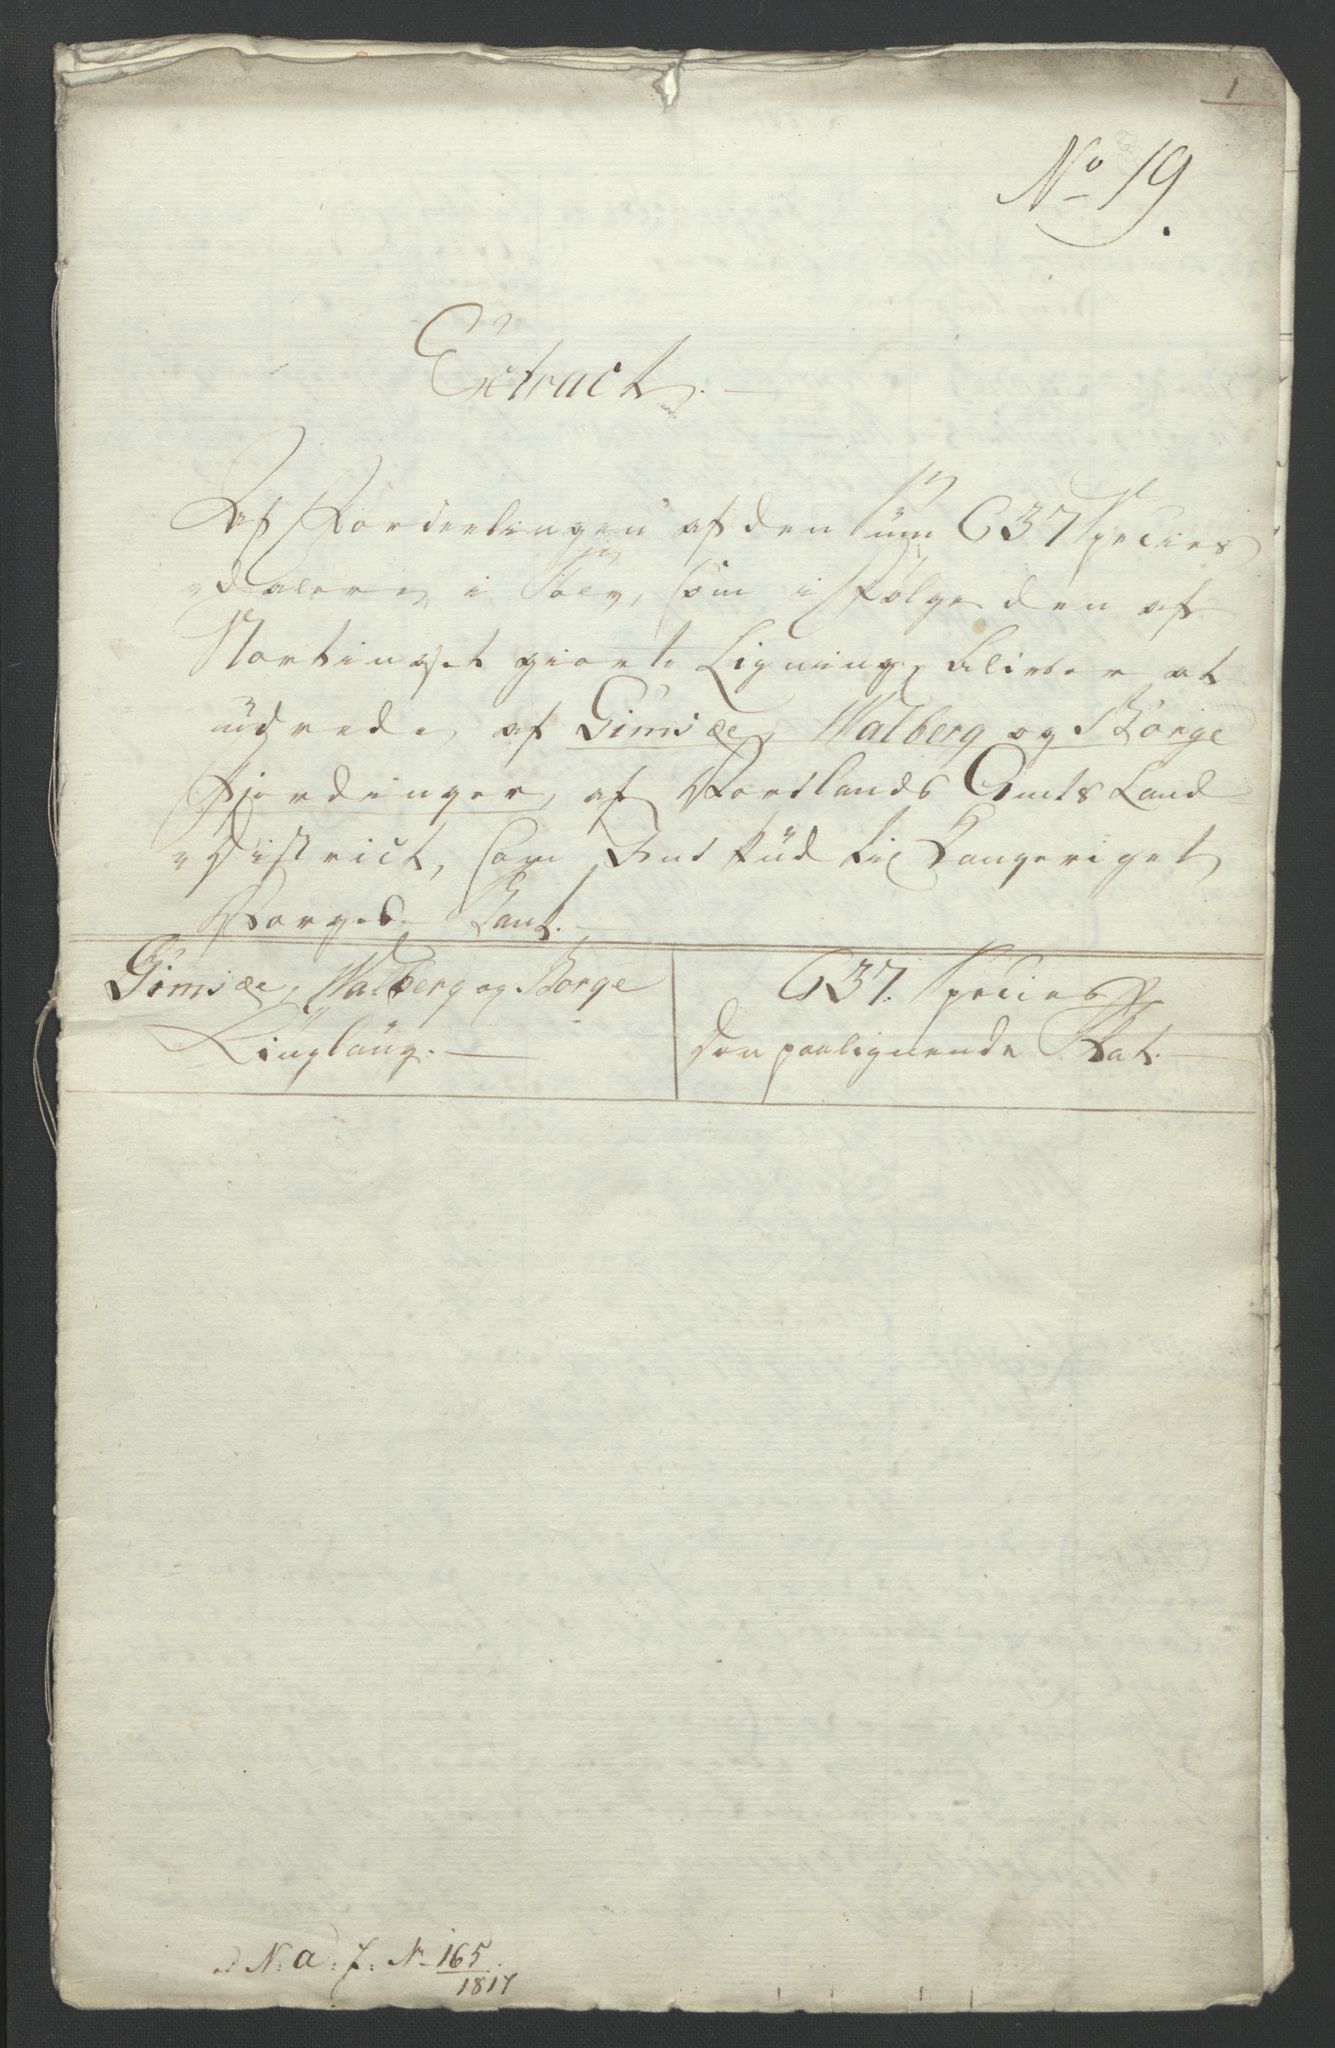 1
No 19.
Extract.
Af Fordeelingen af den Sum 637 Species
daler i Sølv, som i Følge den af
Stortinget giorte Ligning bliver at
udrede af Gimsøe, Walberg og Borge
Fjerdinger, af Nordlands Amts Land
District, som Indskud til Kongeriget
Norges Bank.
Gimsøe, Walberg og Borge
Tinglaug.
637. Species
den paalignende Skat.
N: a: f: N 165
1817